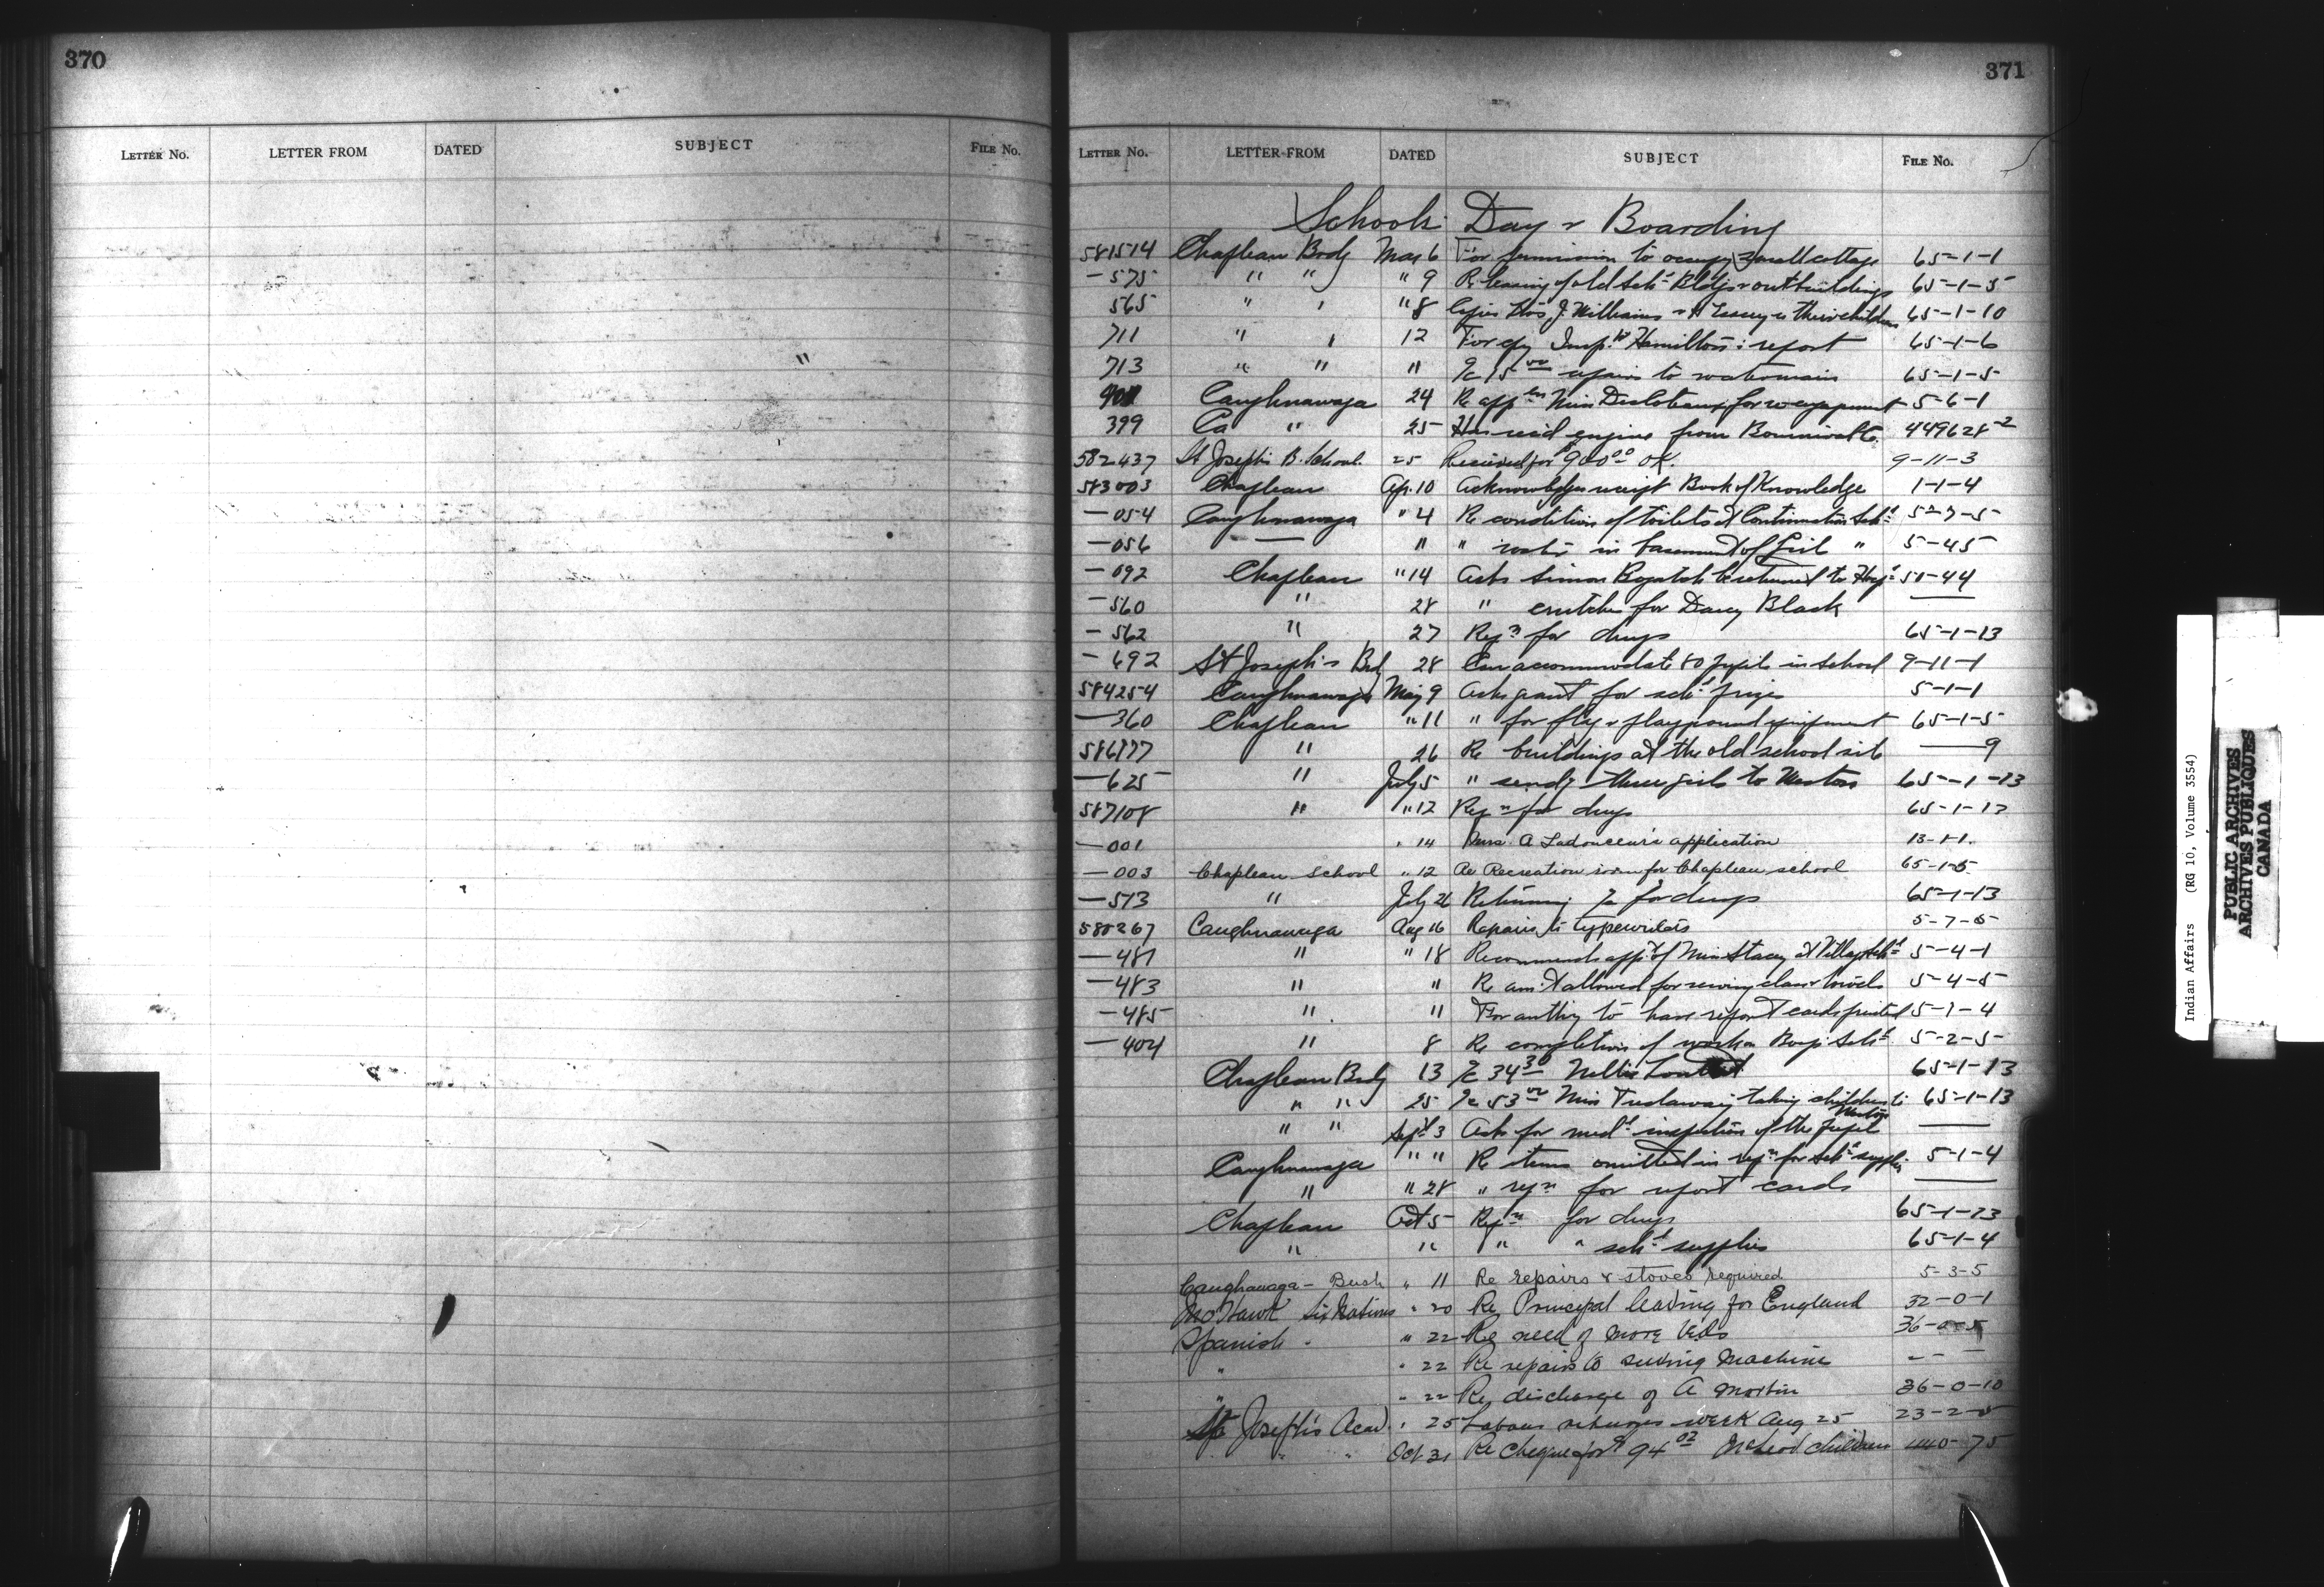 370
LETTER NO. LETTER FROM DATED SUBJECT FILE No.
371
LETTER NO. LETTER FROM DATED SUBJECT FILE No.
Schools Day & Boarding
581514 Chapleau Brdg Mar 6 For permission to occupy small cottage 65-1-1
—575 " " " 9 Re leasing of old Sch.l Bldgs & outbuildings 65-1-5
565 " " " 8 J. Williams & their children 65-1-10
711 " " 12 For cpy Insp.tr Hamilton's report 65-1-6
713 " " " 15 00 repairs to watermain 65-1-5
901 Caughnawaga 24 Re app Miss for 5-6-1
399 Ca " 25 Has rec'd engine from 449628-2
582437 St Joseph's B. School. 25 Received for $900 00 OK. 9-11-3
583003 Chapleau Ap. 10 Acknowledges receipt Book of Knowledge 1-1-4
—054 Caughnawaga " 4 Re condition of toilets at Continuation Sch.l 5-7-5
—056 — " " water in basement of Girls " 5-45
—092 Chapleau " 14 Asks Simon be returned to 51-44
—560 " 28 " crutches for Black —
—562 " 27 Reqn for drugs 65-1-13
—692 St Joseph's Brd 28 Can accommodate 80 pupils in school 9-11-1
584254 Caughnawaga May 9 Asks grant for sch.l prizes 5-1-1
—360 Chapleau " 11 " for playground equipment 65-1-5
586177 " 26 Re buildings at the old school site —9
—625 " July 5 " sendg three girls to Weston 65-1-13
587108 " " 12 Reqn for drugs 65-1-13
—001 " 14 Mrs. A Ladouceur's application 13-1-1.
—003 Chapleau School " 12 Re Recreation room for Chapleau school 65-1-5
—513 " July 26 Returning for drugs 65-1-13
588267 Caughnawaga Aug 16 Repairs to typewriters 5-7-5
—481 " " 18 Recommends app.t of Miss Stacey at Village Sch.l 5-4-1
—483 " " Re am't allowed for sewing class & towels 5-4-5
—485 " " For authy to have report cards printed 5-1-4
—404 " 8 Re completion of work on Boys Sch.l 5-2-5
Chapleau Brdg 13 34 30 Nellie 65-1-13
" " 25 53 00 Miss taking children to Weston 65-1-13
" " Sept 3 Asks for med.l inspection of the pupils —
Caughnawaga " " Re items omitted in reqn for sch.l supplies 5-1-4
" " 28 " reqn for report cards —
Chapleau Oct 5 Reqn for drugs 65-1-13
" " " " sch.l supplies 65-1-4
Caughnawaga - Bush " 11 Re repairs & stoves required 5-3-5
Mohawk Six Nations " 20 Re Principal leaving for England 32-0-1
Spanish " " 22 Re need of more beds 36-0-5
" " 22 Re repairs to sewing machine — — —
" " 22 Re discharge of A Martin 36-0-10
St Joseph's Acad. " 25 Labour returns week Aug 25 23-2-5
" " Oct 31 Re Cheque for $94 02 McLeod children 440-75
Indian Affairs (RG 10, Volume 3554)
PUBLIC ARCHIVES
ARCHIVES PUBLIQUES
CANADA